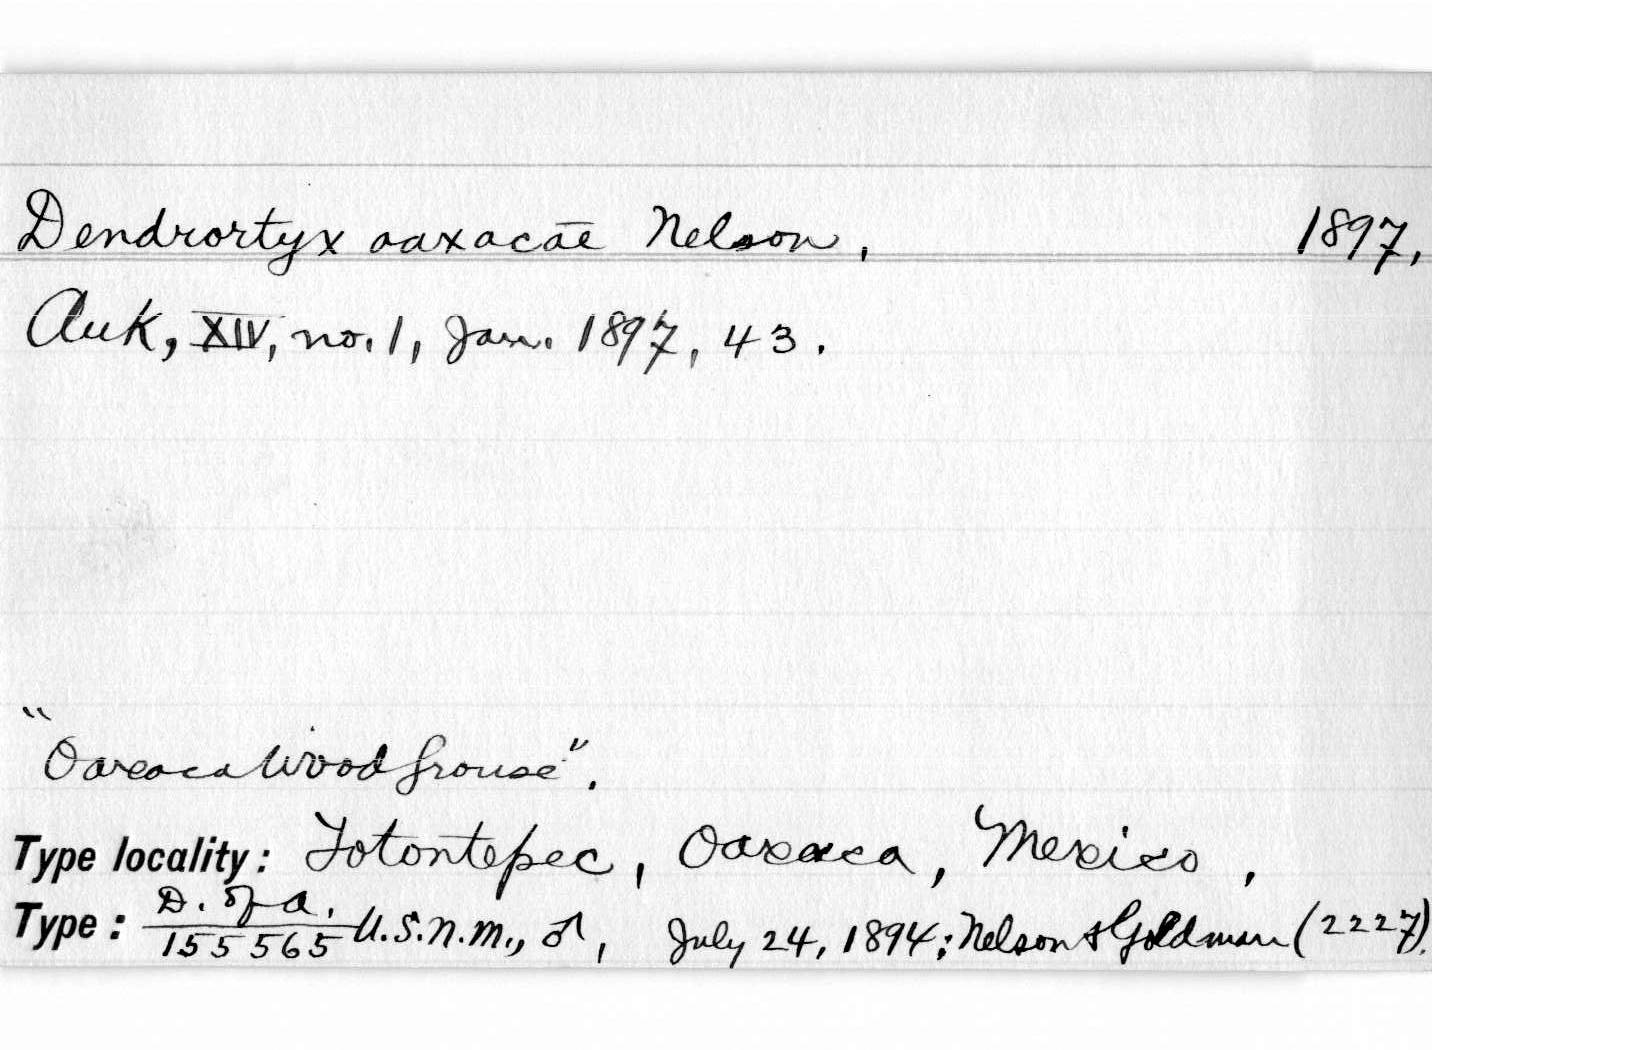 Dendrortyx oaxacae Nelson, 1897,
Auk, XIV, no. 1, Jan. 1897, 43.
"Oaxaca Wood Grouse".
Type locality: Totontepec, Oaxaca, Mexico,
Type: D. of A. / 155565 U.S.N.M., ♂, July 24, 1894; Nelson & Goldman (2227).